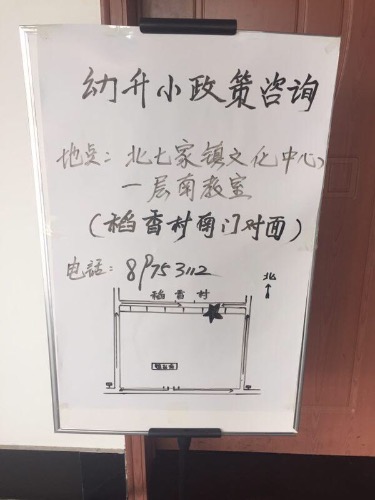 幼升小政策咨询
地点：北七家镇文化中心
一层南教室
（稻香村南门对面）
电话：89753112
北
稻香村